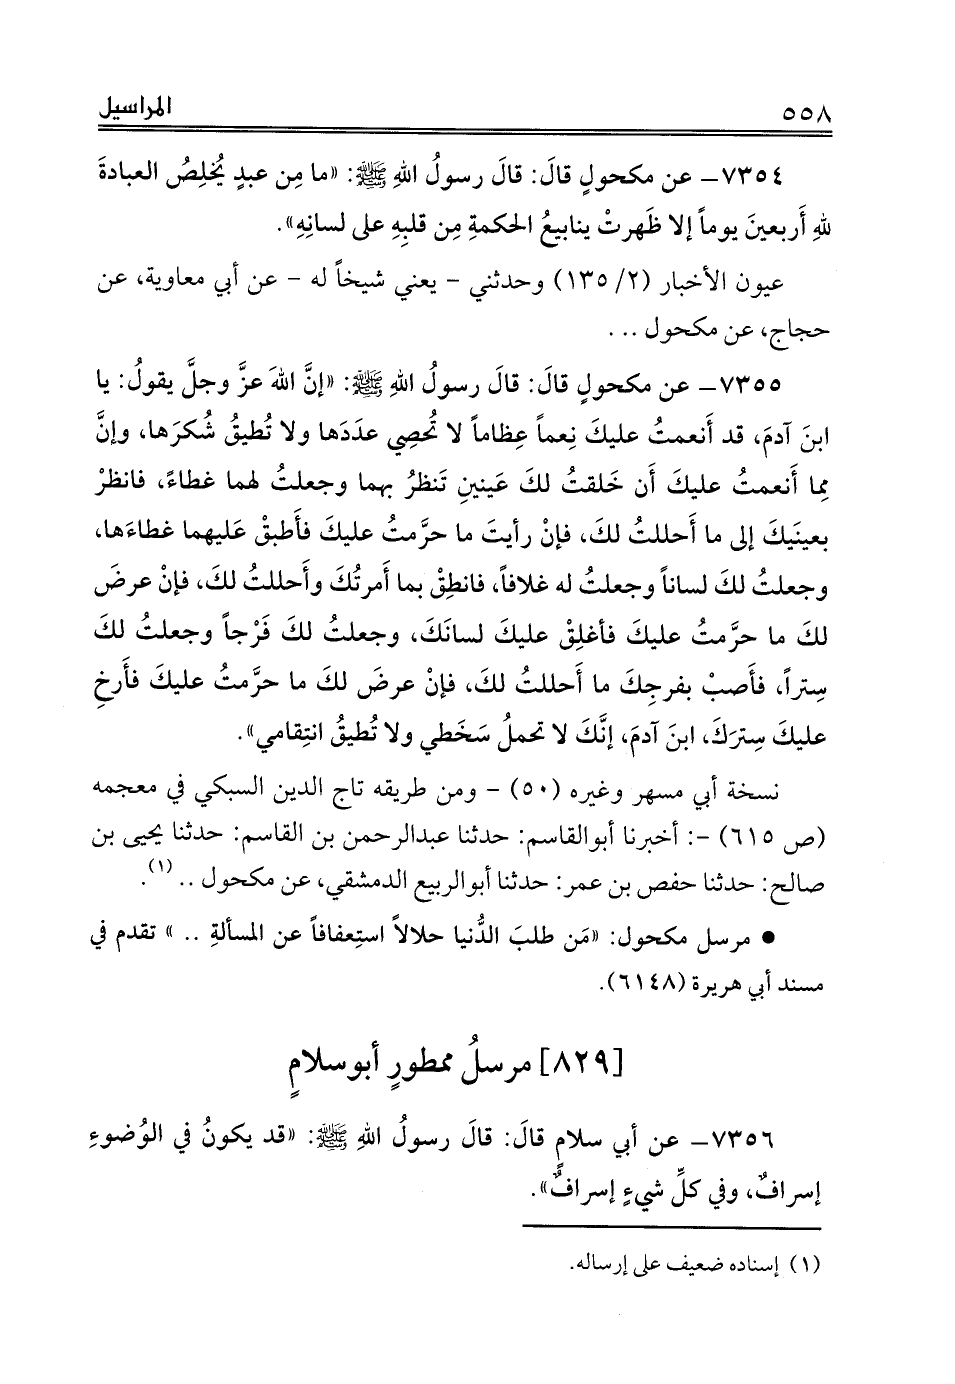 ٥٥٨
المراسيل
٧٣٥٤ــ عن مكحولٍ قالَ: قالَ رسولُ اللهِ ﷺ: «ما مِن عبدٍ يُخلِصُ العبادةَ
للهِ أَربعينَ يوماً إلا ظَهرتْ ينابيعُ الحكمةِ مِن قلبِهِ على لسانِهِ».
عيون الأخبار (٢/ ١٣٥) وحدثني – يعني شيخاً له – عن أبي معاوية، عن
حجاج، عن مكحول ...
٧٣٥٥ــ عن مكحولٍ قالَ: قالَ رسولُ اللهِ ﷺ: «إنَّ اللهَ عزَّ وجلَّ يقولُ: يا
ابنَ آدمَ، قد أَنعمتُ عليكَ نِعماً عِظاماً لا تُحصِي عدَدَها ولا تُطيقُ شُكرَها، وإنَّ
مِما أَنعمتُ عليكَ أَن خَلقتُ لكَ عَينينِ تَنظرُ بهما وجعلتُ لهما غطاءً، فانظرْ
بعينَيكَ إلى ما أَحللتُ لكَ، فإنْ رأيتَ ما حرَّمتُ عليكَ فأَطبقْ عَليهما غطاءَها،
وجعلتُ لكَ لساناً وجعلتُ له غلافاً، فانطِقْ بما أَمرتُكَ وأَحللتُ لكَ، فإنْ عرضَ
لكَ ما حرَّمتُ عليكَ فأَغلِقْ عليكَ لسانَكَ، وجعلتُ لكَ فَرْجاً وجعلتُ لكَ
سِتراً، فأَصبْ بفرجِكَ ما أَحللتُ لكَ، فإنْ عرضَ لكَ ما حرَّمتُ عليكَ فأَرخِ
عليكَ سِترَكَ، ابنَ آدمَ، إنَّكَ لا تحملُ سَخَطي ولا تُطيقُ انتِقامي».
نسخة أبي مسهر وغيره (٥٠) – ومن طريقه تاج الدين السبكي في معجمه
(ص ٦١٥) –: أخبرنا أبوالقاسم: حدثنا عبدالرحمن بن القاسم: حدثنا يحيى بن
صالح: حدثنا حفص بن عمر: حدثنا أبوالربيع الدمشقي، عن مكحول .. (١).
● مرسل مكحول: «مَن طلبَ الدُّنيا حلالاً استِعفافاً عن المسألةِ .. » تقدم في
مسند أبي هريرة (٦١٤٨).
[٨٢٩] مرسلُ ممطورٍ أبو سلامٍ
٧٣٥٦ــ عن أبي سلامٍ قالَ: قالَ رسولُ اللهِ ﷺ: «قد يكونُ في الوُضوءِ
إسرافٌ، وفي كلِّ شيءٍ إسرافٌ».
(١) إسناده ضعيف على إرساله.